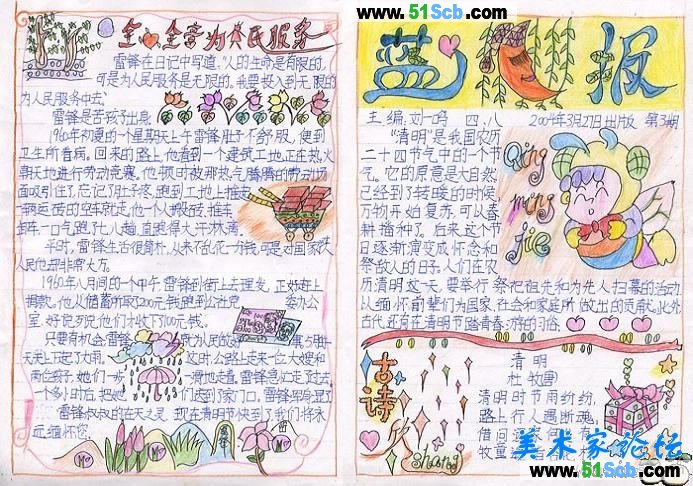 www.51Scb.com
全心全意为人民服务
雷锋在日记中写道："人的生命是有限的。
可是为人民服务是无限的。我要投入到无限的
为人民服务中去。"
雷锋是苦孩子出身
1960年初夏的一个星期天上午雷锋肚子不舒服，便到
卫生所看病。回来的路上，他看到一个建筑工地正在热火
朝天地进行劳动竞赛。他顿时被那热气腾腾的劳动场
面吸引住了，忘记了肚子疼。跑到工地上推起
一辆运砖的空车就走。他一个人搬砖，推车
一口气跑了七八趟，直跑得大汗淋漓。
平时，雷锋生活很简朴，从来不乱花一分钱，可是对国家
人民他却非常大方。
1960年八月间的一个中午，雷锋到街上去理发，正好赶上
捐款。他从储蓄所取200元钱，跑到公社党委办公
室，好说歹说他们才收下100元钱。
只要有机会，雷锋就为人民做好事。5月的一
天，天上下起了大雨，这时，公路上走来一位大嫂和
两位孩子。她们一步一滑地走着。雷锋急忙走了过去
一个多小时后，把她们送到了家门口。
雷锋叔叔的在天之灵，现在清明节快到了我们将永
远缅怀您。
蓝天报
主编：刘一鸣 四、八 2009年3月27日出版 第3期
"清明"是我国农历
二十四节气中的一个节
气。它的原意是大自然
已经到了转暖的时候
万物开始复苏，可以春
耕播种了。后来这个节
日逐渐演变成怀念和
祭敬人的日子。人们在农
历清明这一天，要举行祭祀祖先和为先人扫墓的活动
从缅怀前辈们为国家、社会和家庭所做出的贡献。此外
古代还有在清明节踏青春游的习俗
Qing
ming
jie
古诗欣
shang
清明
杜牧（唐）
清明时节雨纷纷，
路上行人遇断魂，
借问
牧童
美术家论坛
www.51Scb.com